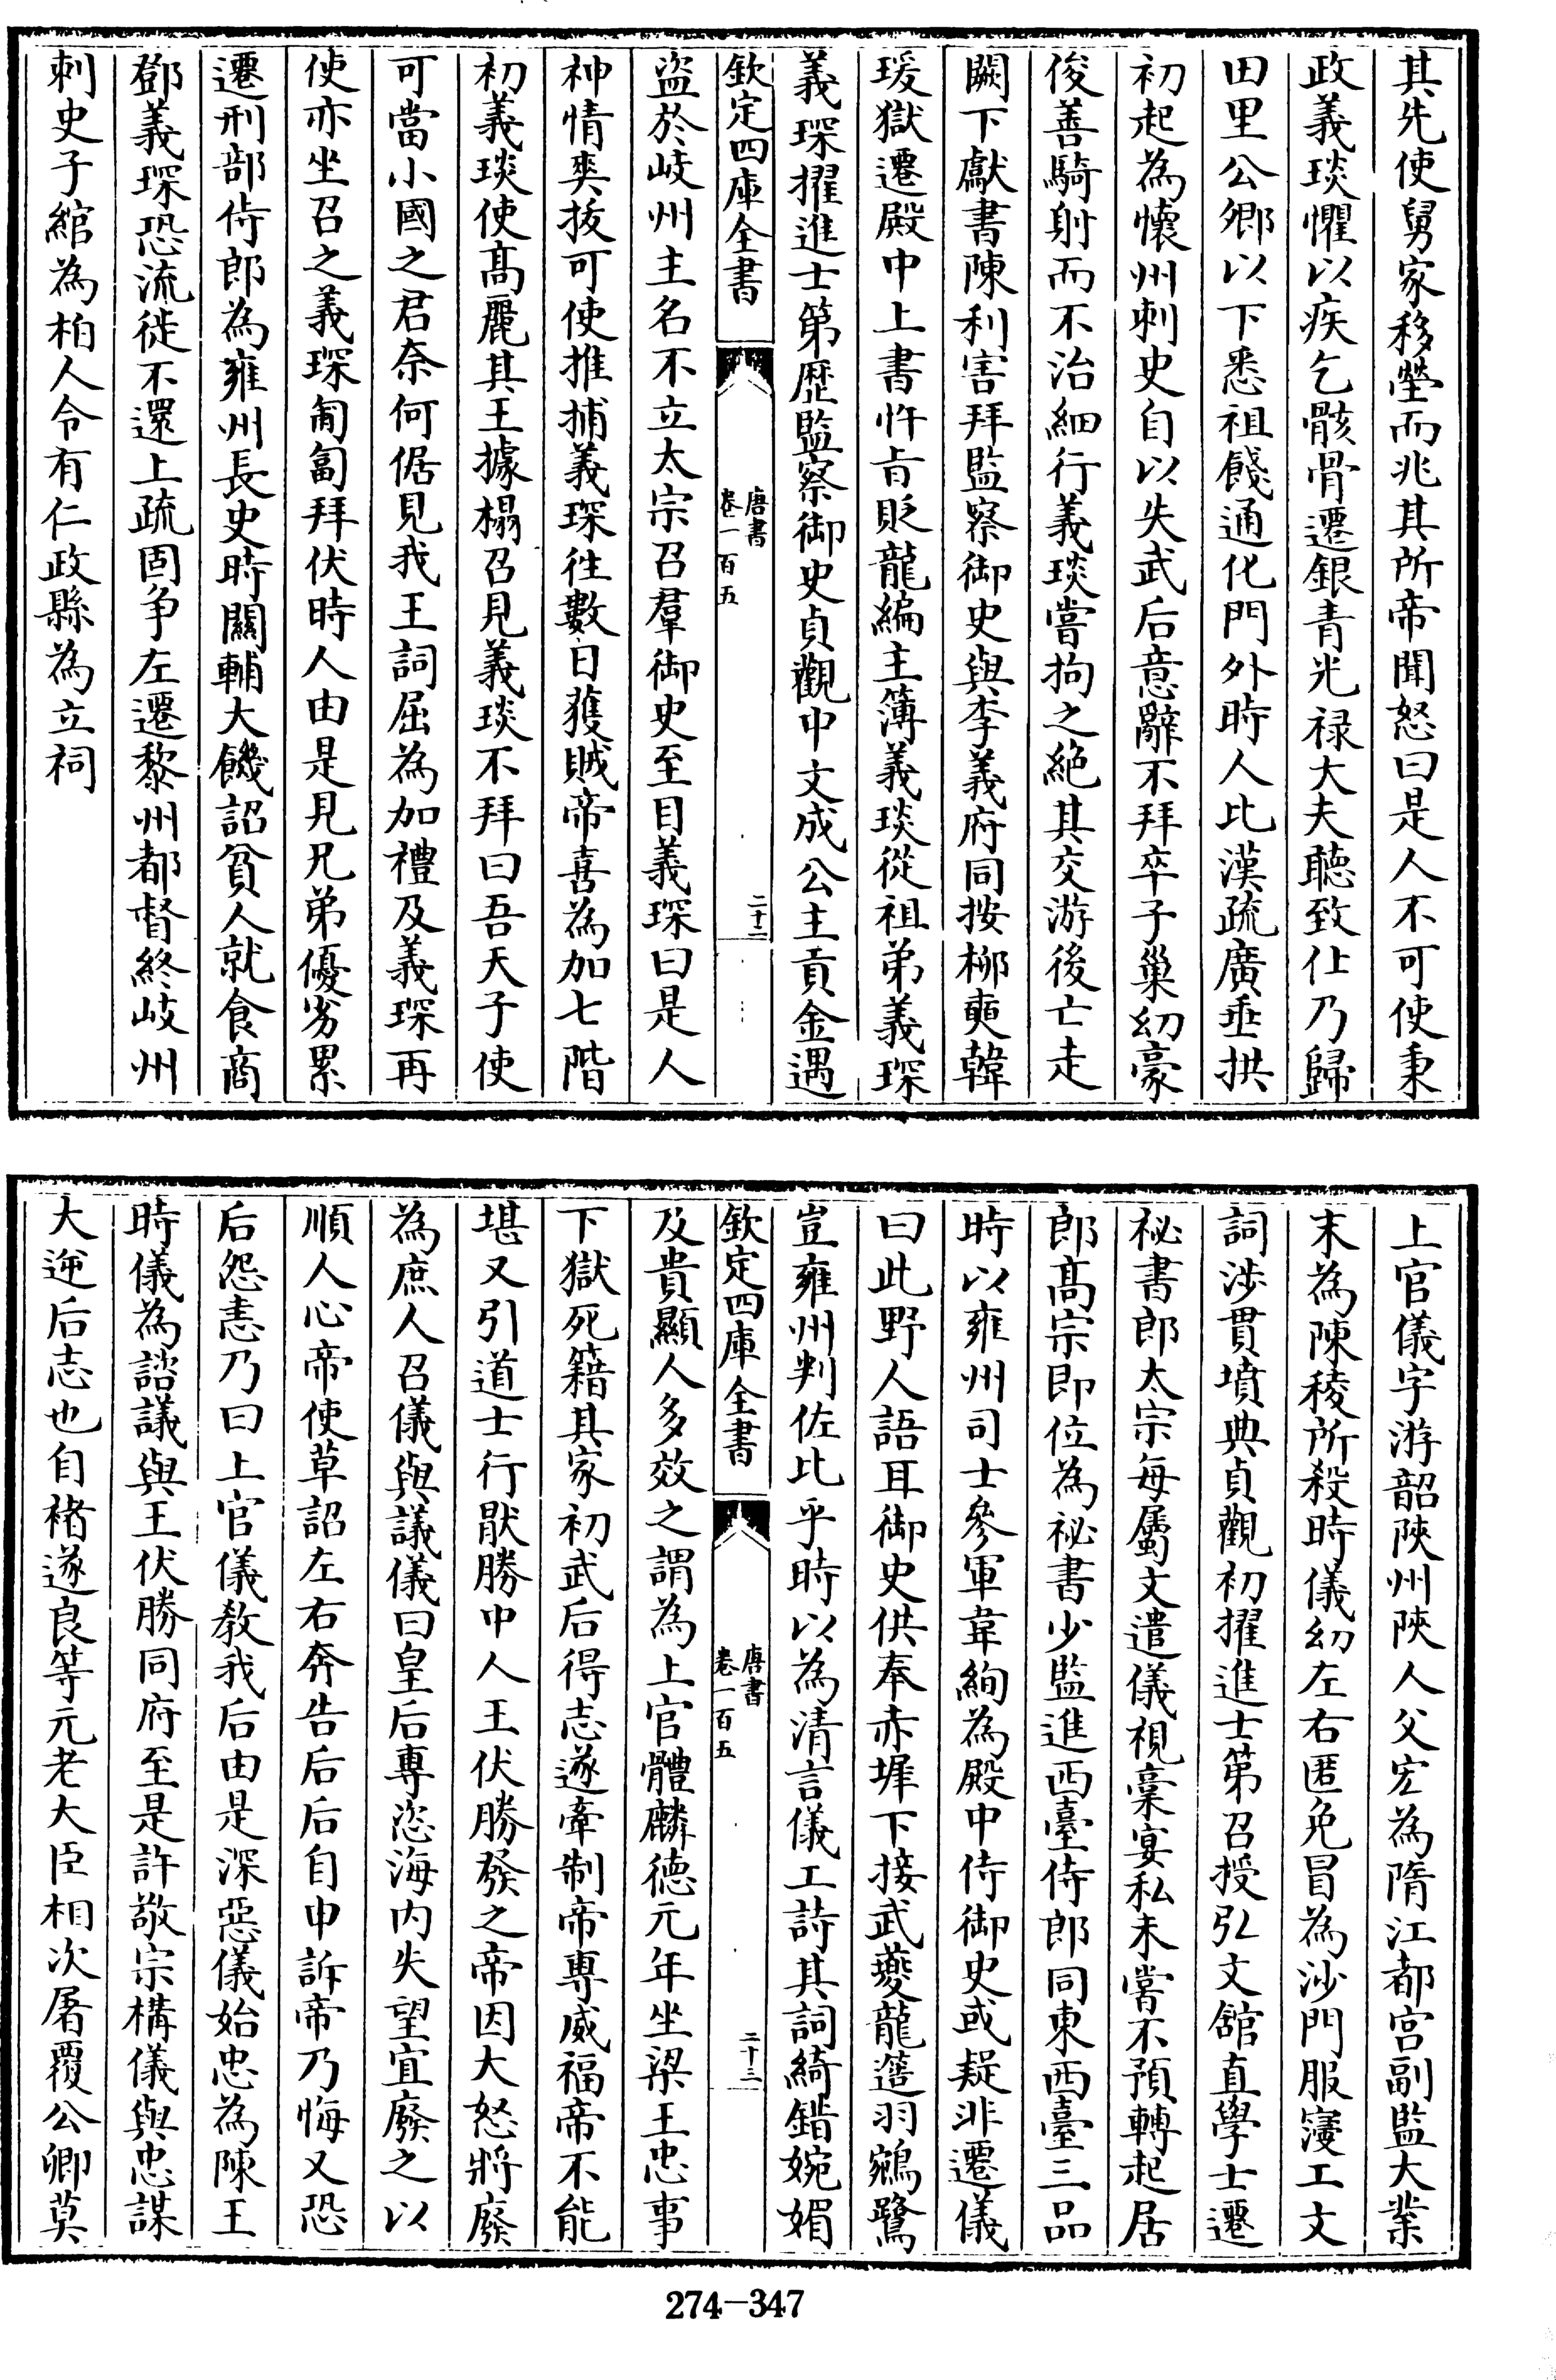 其先使舅家移塋而兆其所帝聞怒曰是人不可使秉
政義琰懼以疾乞骸骨遷銀青光禄大夫聽致仕乃歸
田里公卿以下悉祖餞通化門外時人比漢疏廣垂拱
初起為懷州刺史自以失武后意辭不拜卒子巢幼豪
俊善騎射而不治細行義琰嘗拘之絶其交游後亡走
闕下獻書陳利害拜監察御史與李義府同按柳奭韓
瑗獄遷殿中上書忤㫖貶龍編主簿義琰從祖弟義琛
義琛擢進士第歴監察御史貞觀中文成公主貢金遇
欽定四庫全書
唐書
卷一百五
二十二
盗於岐州主名不立太宗召羣御史至目義琛曰是人
神情爽拔可使推捕義琛徃數日獲賊帝喜為加七階
初義琰使髙麗其王據榻召見義琰不拜曰吾天子使
可當小國之君奈何倨見我王詞屈為加禮及義琛再
使亦坐召之義琛匍匐拜伏時人由是見兄弟優劣累
遷刑部侍郎為雍州長史時關輔大饑詔貧人就食商
鄧義琛恐流徙不還上疏固争左遷黎州都督終岐州
刺史子綰為柏人令有仁政縣為立祠
上官儀字游韶陜州陜人父宏為隋江都宫副監大業
末為陳稜所殺時儀幼左右匿免冒為沙門服寖工文
詞涉貫墳典貞觀初擢進士第召授弘文舘直學士遷
祕書郎太宗每屬文遣儀視稾宴私未嘗不預轉起居
郎髙宗即位為祕書少監進西臺侍郎同東西臺三品
時以雍州司士參軍韋絢為殿中侍御史或疑非遷儀
曰此野人語耳御史供奉赤墀下接武夔龍簉羽鵷鷺
豈雍州判佐比乎時以為清言儀工詩其詞綺錯婉媚
欽定四庫全書
唐書
卷一百五
二十三
及貴顯人多效之謂為上官體麟德元年坐梁王忠事
下獄死籍其家初武后得志遂牽制帝專威福帝不能
堪又引道士行厭勝中人王伏勝發之帝因大怒將廢
為庶人召儀與議儀曰皇后專恣海内失望宜廢之以
順人心帝使草詔左右奔告后后自申訴帝乃悔又恐
后怨恚乃曰上官儀教我后由是深惡儀始忠為陳王
時儀為諮議與王伏勝同府至是許敬宗構儀與忠謀
大逆后志也自褚遂良等元老大臣相次屠覆公卿莫
274-347